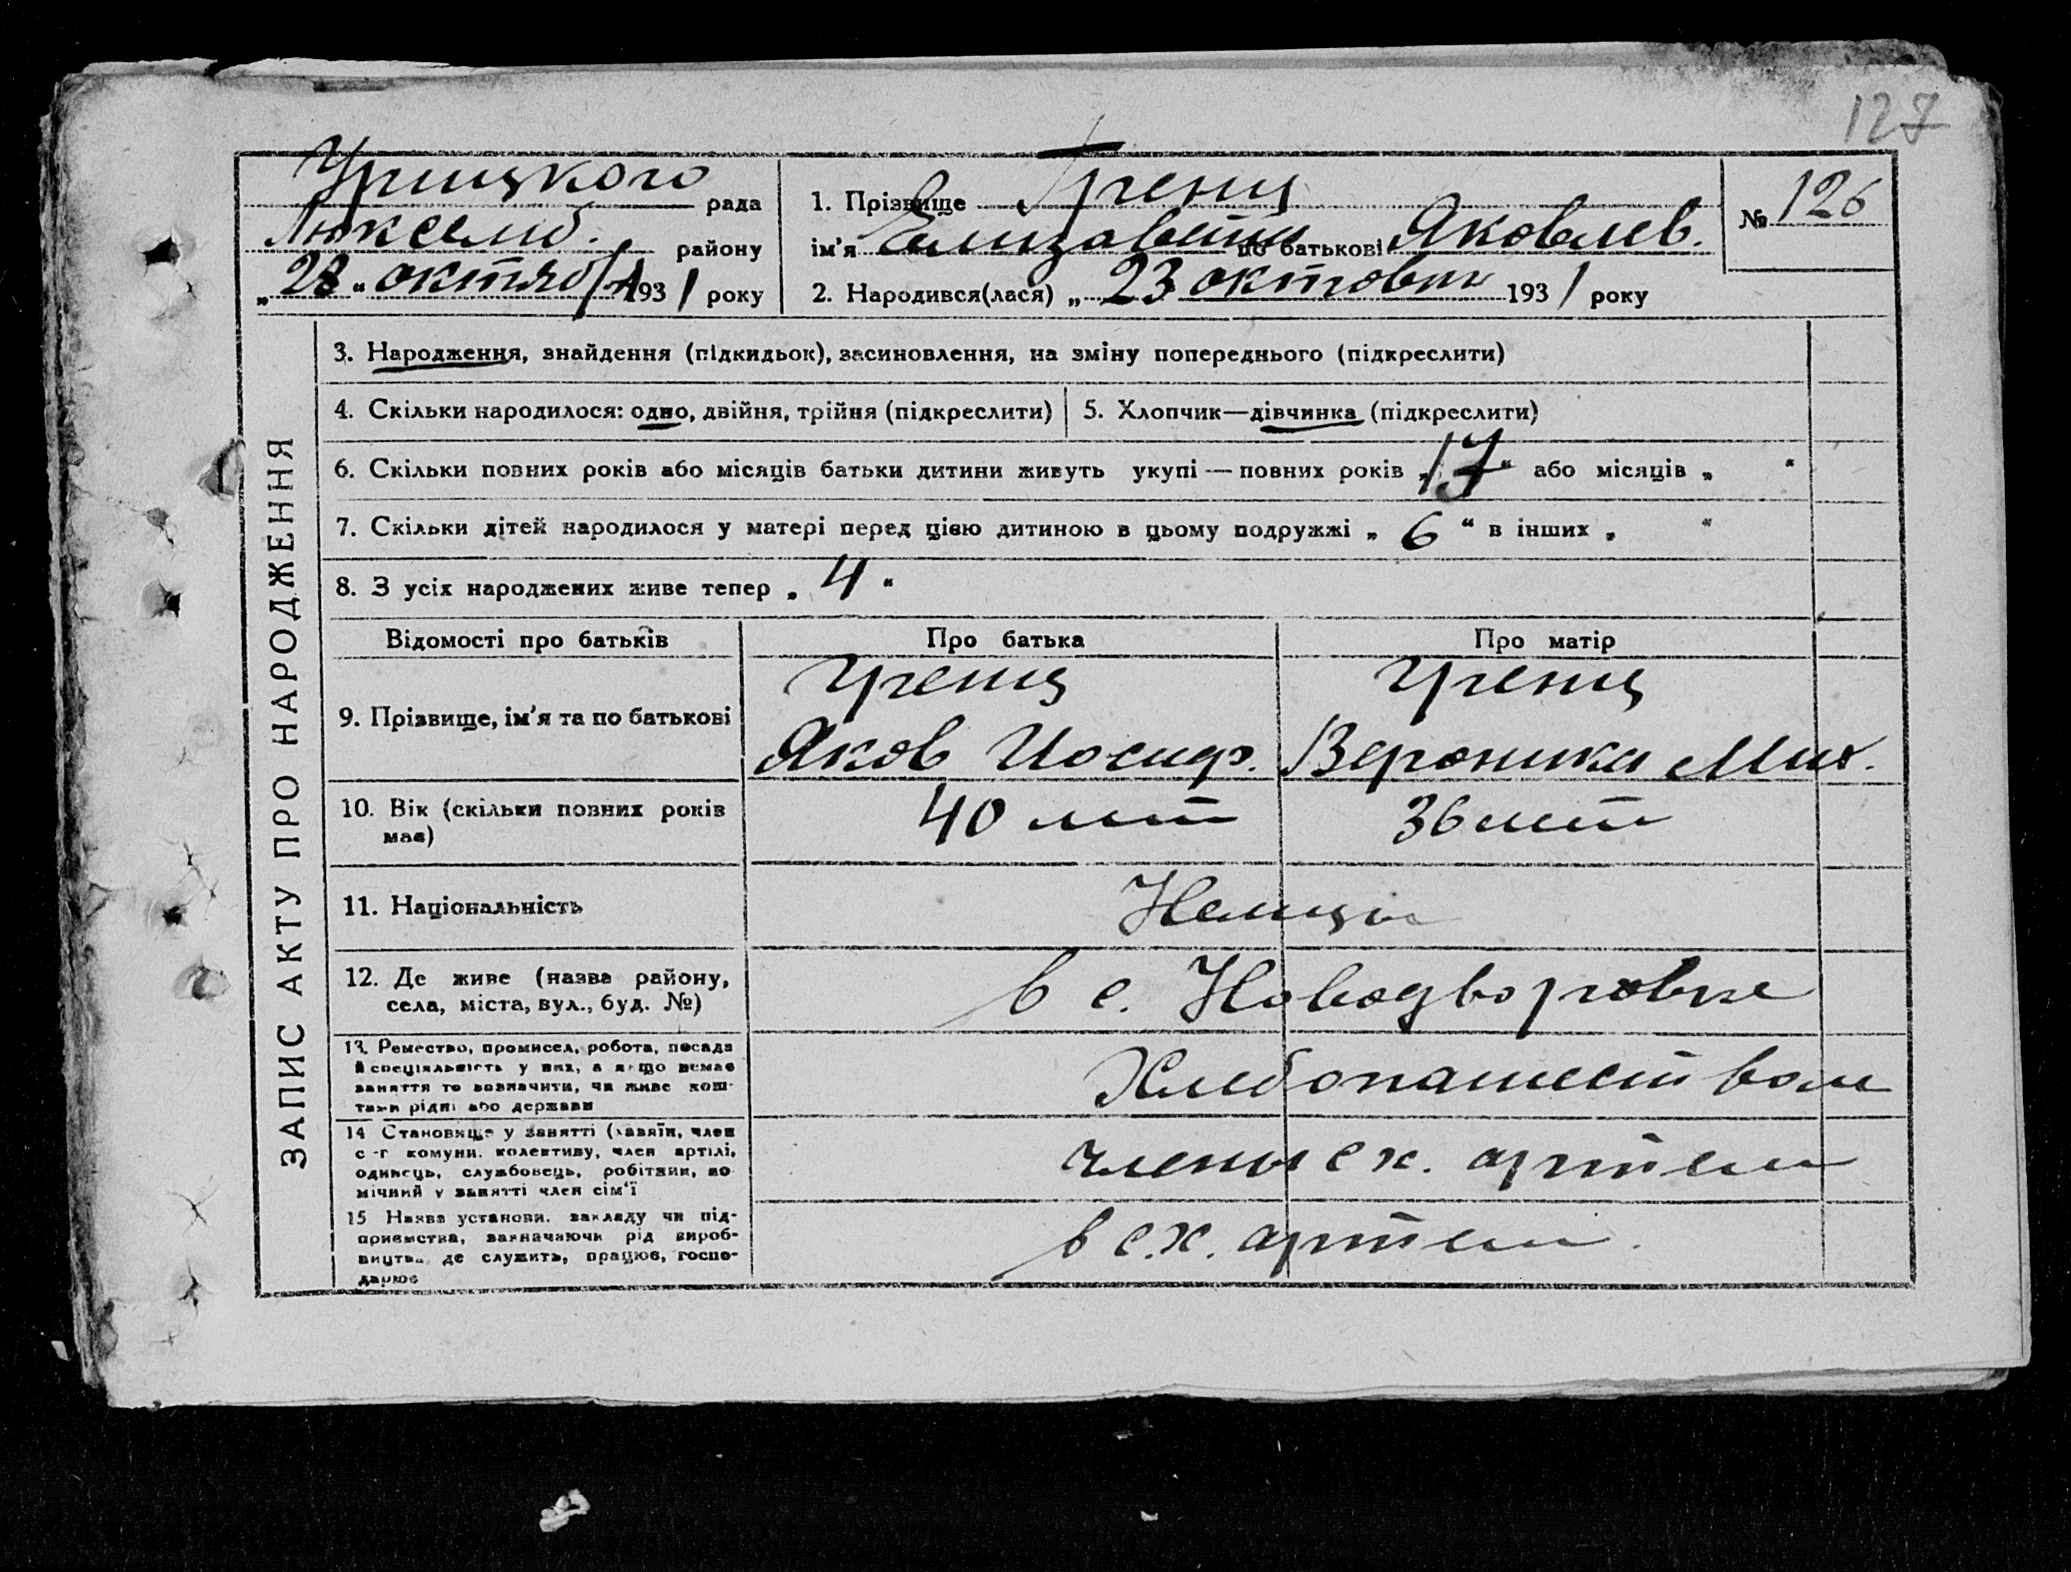 127
Урицкого рада
Люксемб. району
„28“ октября 1931 року
1. Прізвище Гренц
ім'я Елизавета по батькові Яковлев.
2. Народився(лася) „23 октября 1931 року
№ 126
ЗАПИС АКТУ ПРО НАРОДЖЕННЯ
3. Народження, знайдення (підкидьок), засиновлення, на зміну попереднього (підкреслити)
4. Скільки народилося: одно, двійня, трійня (підкреслити)
5. Хлопчик—дівчинка (підкреслити)
6. Скільки повних років або місяців батьки дитини живуть укупі — повних років „17“ або місяців „ “
7. Скільки дітей народилося у матері перед цією дитиною в цьому подружжі „ 6 “ в інших „ “
8. З усіх народжених живе тепер „ 4 “
Відомості про батьків
Про батька
Про матір
9. Прізвище, ім'я та по батькові
Гренц
Яков Иосиф.
Гренц
Вероника Мих.
10. Вік (скільки повних років
має)
40 лет
36 лет
11. Національність
Немцы
12. Де живе (назва району,
села, міста, вул., буд. №)
в с.
13. Ремество, промисел, робота, посада
й спеціяльність у них, а якщо немає
заняття то зазначити, чи живе кош-
тами рідні або держави
Хлебопашеством
14 Становище у занятті (хазяїн, член
с-г комуни, колективу, член артілі,
одинець, службовець, робітник, по-
мічний у занятті член сім'ї
члены с х. артели
15 Назва установи, закладу чи під-
приємства, зазначаючи рід вироб-
ництва, де служить, працює, госпо-
дарює
в с.х. артели.